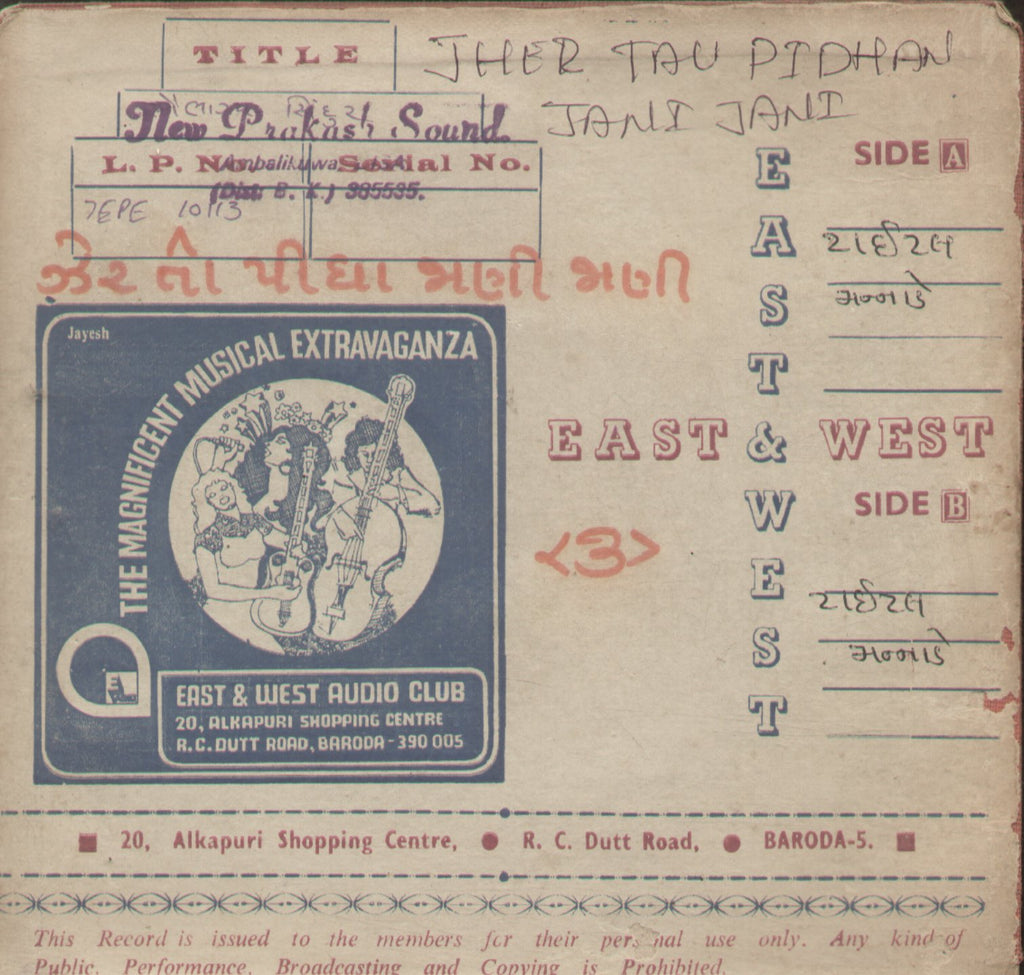 TITLE
JHER TAU PIDHAN
JANI JANI
New Prakash Sound.
L. P. No. Serial No.
(Dist. B. K.) 385535.
7EPE 10113
ઝેર તો પીધા જાણી જાણી
SIDE A
ટાઈટલ
મન્નાડે
Jayesh
THE MAGNIFICENT MUSICAL EXTRAVAGANZA
EAST & WEST
EAST & WEST
SIDE B
<3>
ટાઈટલ
મન્નાડે
EAST & WEST AUDIO CLUB
20, ALKAPURI SHOPPING CENTRE
R.C. DUTT ROAD, BARODA - 390 005
20, Alkapuri Shopping Centre, R. C. Dutt Road, BARODA-5.
This Record is issued to the members for their personal use only. Any kind of
Public. Performance, Broadcasting and Copying is Prohibited.